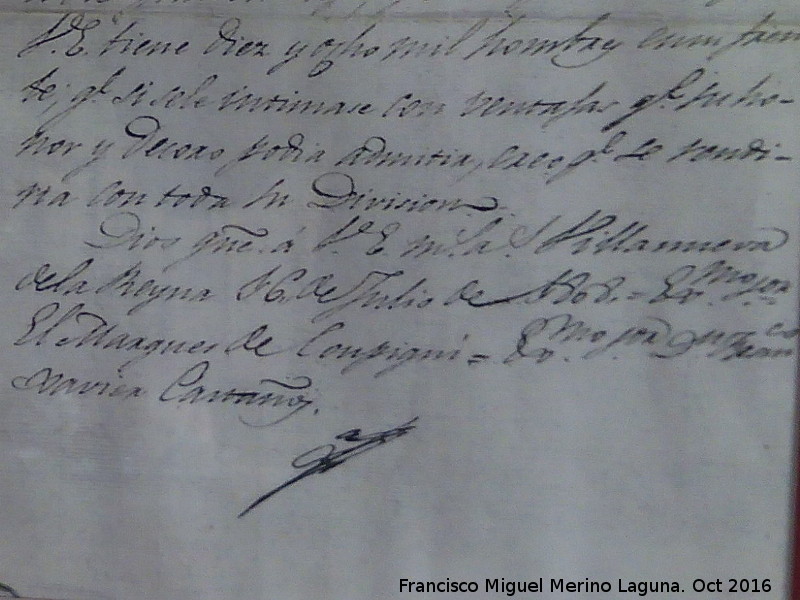 V.E. tiene diez y ocho mil hombres en su fren-
te, q.e si se le intimase con ventajas q.e su ho-
nor y Decoro podia admitir, creo q.e se rendi-
ria con toda su Division.
Dios gue. á V.E. m.s a.s Villanueva
de la Reyna 16. de Julio de 1808. = Exmo. Sor. =
El Marques de Coupigni = Exmo. Sor. Dn. Franco
Xavier Castaños.
Francisco Miguel Merino Laguna. Oct 2016